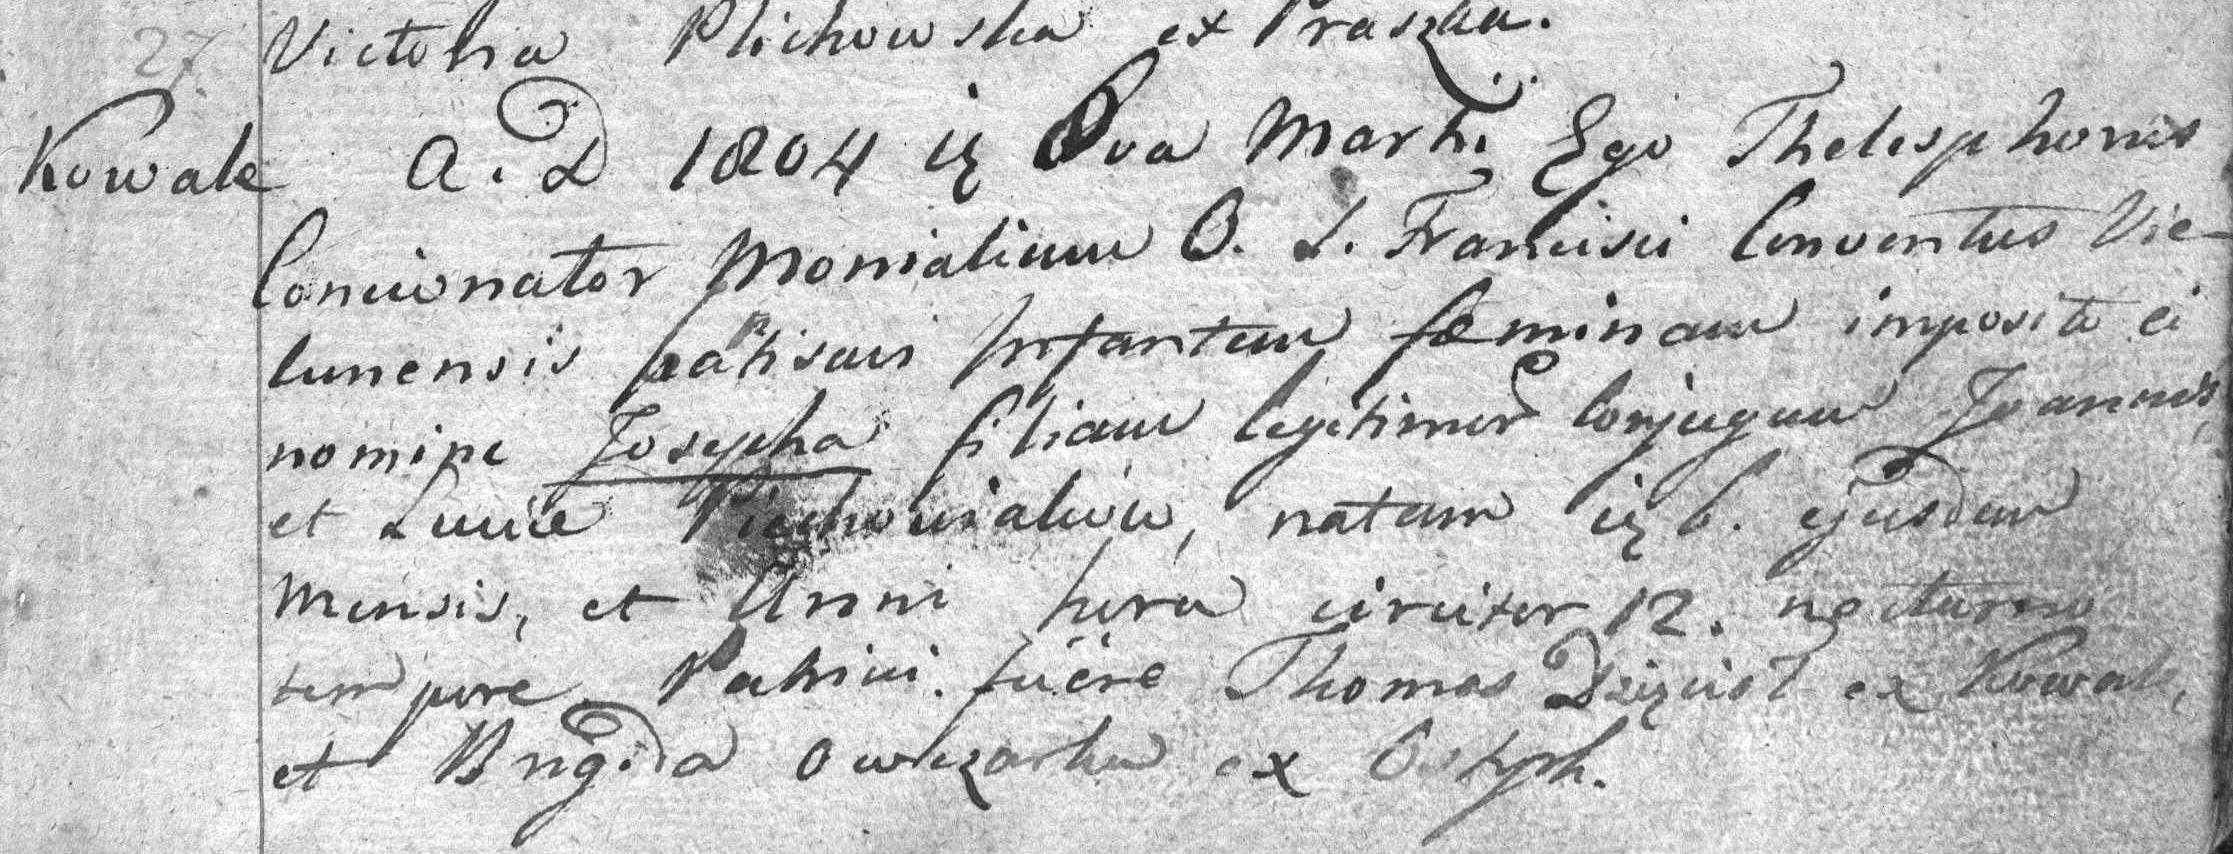 27 Victoria Plichowska ex Praszka.
Kowale A. D 1804 ię 8va Martii Ego Thelesphorus
Concionator Monialium O. S. Francisci Conventus Vie-
lunensis batisavi Infantem feminam imposito ei
nomine Josepha filiam legitimor Conjugum Joannis,
et Luciæ natam ię 6. ejusdem
Mensis, et Anni hora circiter 12. nocturno
tempore. Patrini. fuêre Thomas ex Kowale,
et Brigida Owczarka ex